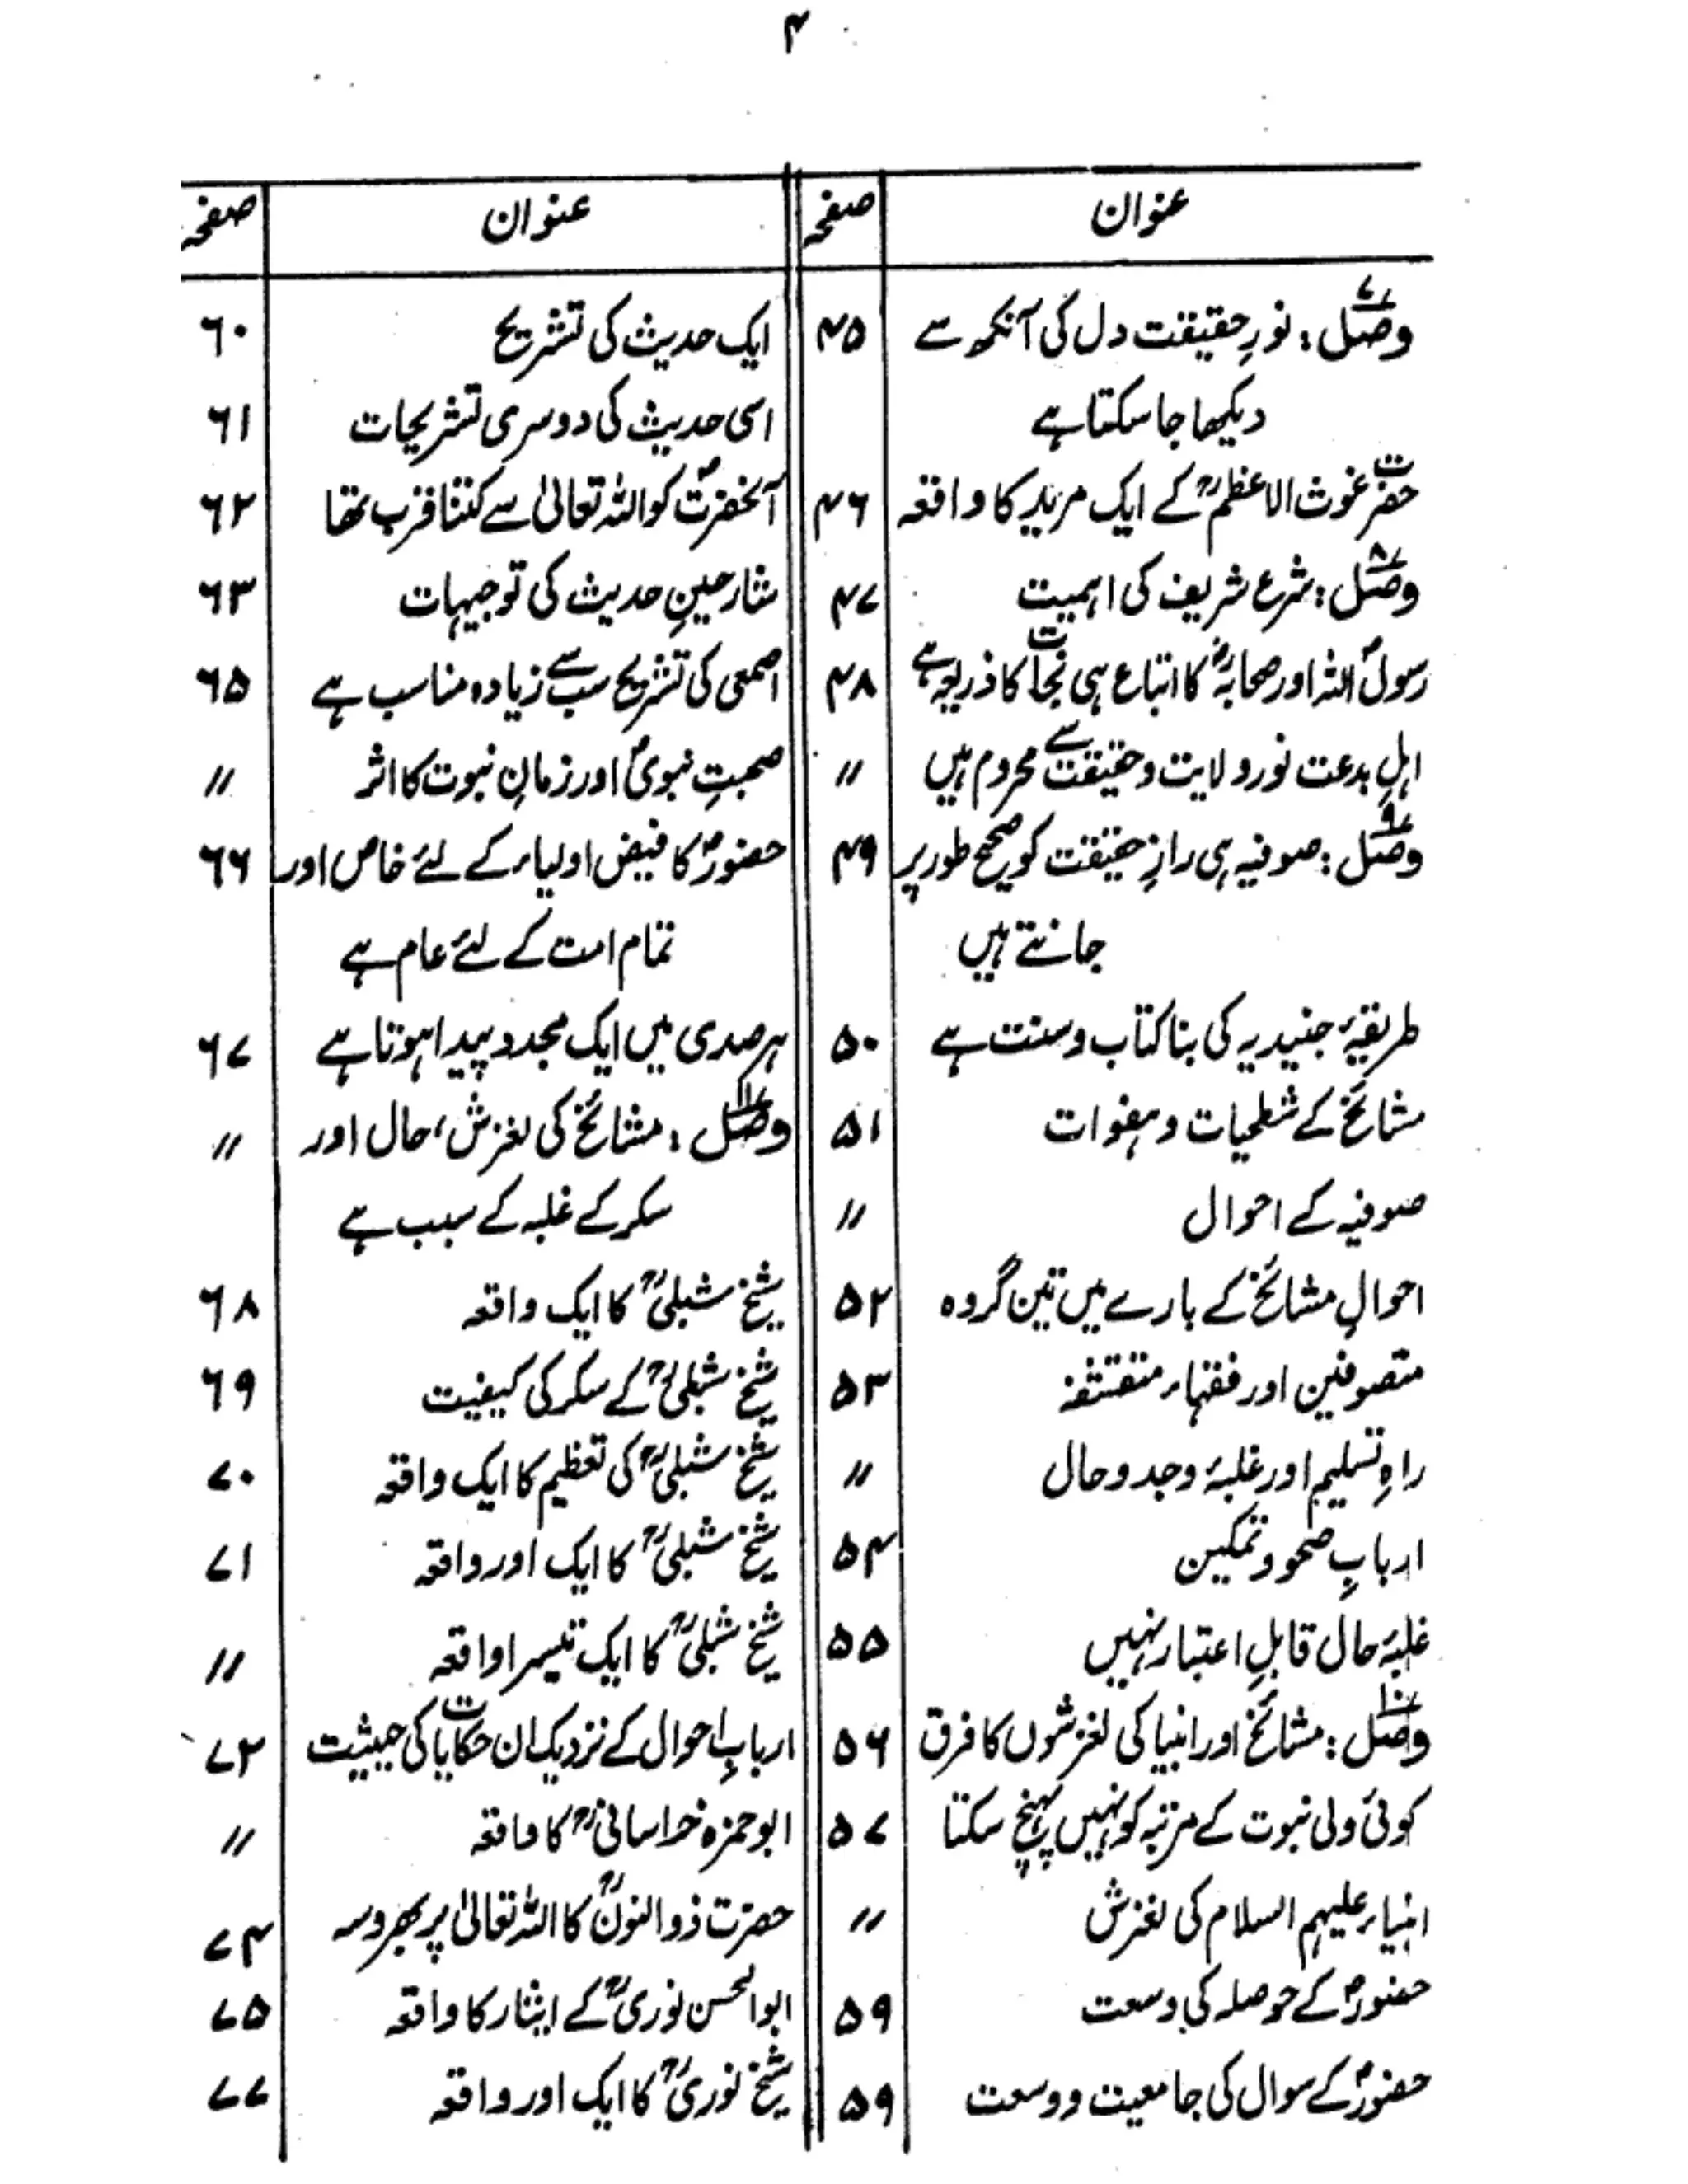 ۴
عنوان صفحہ
وصل ۷: نورِ حقیقت دل کی آنکھ سے ۴۵
دیکھا جا سکتا ہے
حضرت غوث الاعظمؒ کے ایک مرید کا واقعہ ۴۶
وصل ۸: شرع شریف کی اہمیت ۴۷
رسولؐ اللہ اور صحابہؓ کا اتباع ہی نجات کا ذریعہ ہے ۴۸
اہلِ بدعت نور ولایت و حقیقت سے محروم ہیں 〃
وصل ۹: صوفیہ ہی رازِ حقیقت کو صحیح طور پر ۴۹
جانتے ہیں
طریقۂ جنیدیہ کی بنا کتاب و سنت ہے ۵۰
مشائخ کے شطحیات و ہفوات ۵۱
صوفیہ کے احوال 〃
احوالِ مشائخ کے بارے میں تین گروہ ۵۲
متصوفین اور فقہاء متقشفہ ۵۳
راہِ تسلیم اور غلبۂ وجد و حال 〃
اربابِ صحو و تمکین ۵۴
غلبۂ حال قابلِ اعتبار نہیں ۵۵
وصل ۱۰: مشائخ اور انبیا کی لغزشوں کا فرق ۵۶
کوئی ولی نبوت کے مرتبہ کو نہیں پہنچ سکتا ۵۷
انبیاء علیہم السلام کی لغزش 〃
حضورؐ کے حوصلہ کی وسعت ۵۹
حضورؐ کے سوال کی جامعیت و وسعت ۵۹
عنوان صفحہ
ایک حدیث کی تشریح ۶۰
اسی حدیث کی دوسری تشریحات ۶۱
آنحضرتؐ کو اللہ تعالیٰ سے کتنا قرب تھا ۶۲
شارحینِ حدیث کی توجیہات ۶۳
اصمعی کی تشریح سب سے زیادہ مناسب ہے ۶۵
صحبتِ نبویؐ اور زمانِ نبوت کا اثر 〃
حضورؐ کا فیض اولیاء کے لئے خاص اور ۶۶
تمام امت کے لئے عام ہے
ہر صدی میں ایک مجدد پیدا ہوتا ہے ۶۷
وصل ۱۱: مشائخ کی لغزش، حال اور 〃
سکر کے غلبہ کے سبب ہے
شیخ شبلیؒ کا ایک واقعہ ۶۸
شیخ شبلیؒ کے سکر کی کیفیت ۶۹
شیخ شبلیؒ کی تعظیم کا ایک واقعہ ۷۰
شیخ شبلیؒ کا ایک اور واقعہ ۷۱
شیخ شبلیؒ کا ایک تیسرا واقعہ 〃
اربابِ احوال کے نزدیک ان حکایات کی حیثیت ۷۲
ابو حمزہ خراسانیؒ کا واقعہ 〃
حضرت ذوالنونؒ کا اللہ تعالیٰ پر بھروسہ ۷۴
ابوالحسن نوریؒ کے ایثار کا واقعہ ۷۵
شیخ نوریؒ کا ایک اور واقعہ ۷۷